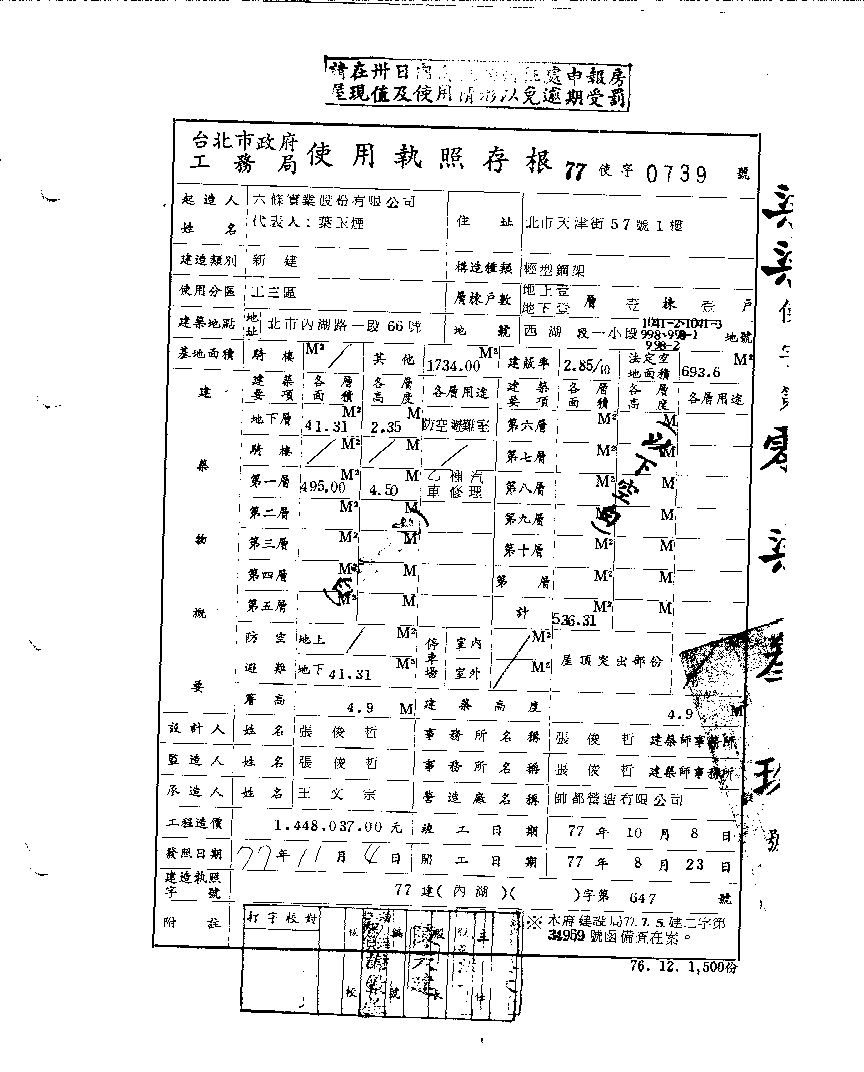 請在卅日內 處申報房
屋現值及使用情形以免逾期受罰
台北市政府
工務局 使用執照存根 77 使字 0739 號
起造人 姓名 六條實業股份有限公司
代表人：葉 煙 住址 北市天津街57號1樓
建造類別 新建 構造種類 輕型鋼架
使用分區 工三區 層棟戶數 地上壹 地下壹 層 壹 棟 壹 戶
建築地點 地址 北市內湖路一段66號 地號 西湖 段一小段 1041-2、1041-3 998、998-1 998-2 地號
基地面積 騎樓 M² / 其他 1734.00 M² 建蔽率 2.85/10 法定空地面積 693.6 M²
建築物概要
建築要項 各層面積 各層高度 各層用途 建築要項 各層面積 各層高度 各層用途
地下層 41.31 M² 2.35 M 防空避難室 第六層 M² M
騎樓 / M² / M 第七層 M² M
第一層 495.00 M² 4.50 M 乙種汽車修理 第八層 M² M
第二層 M² M 第九層 M² M
第三層 M² M 第十層 M² M
第四層 M² M 第 層 M² M
第五層 M² M 計 536.31 M² M
(以下空白)
防空避難 地上 / M² 停車場 室內 / M² 屋頂突出部份
地下 41.31 M² 室外 M²
簷高 4.9 M 建築高度 4.9 M
設計人 姓名 張俊哲 事務所名稱 張俊哲 建築師事務所
監造人 姓名 張俊哲 事務所名稱 張俊哲 建築師事務所
承造人 姓名 王文宗 營造廠名稱 帥都營造有限公司
工程造價 1.448,037.00元 竣工日期 77年10月8日
發照日期 77年11月4日 開工日期 77年8月23日
建造執照字號 77建(內湖)( )字第 647 號
附註 ※本府建設局77.7.5.建二字第
34959號函備查在案。
打字校對
76. 12. 1,500份